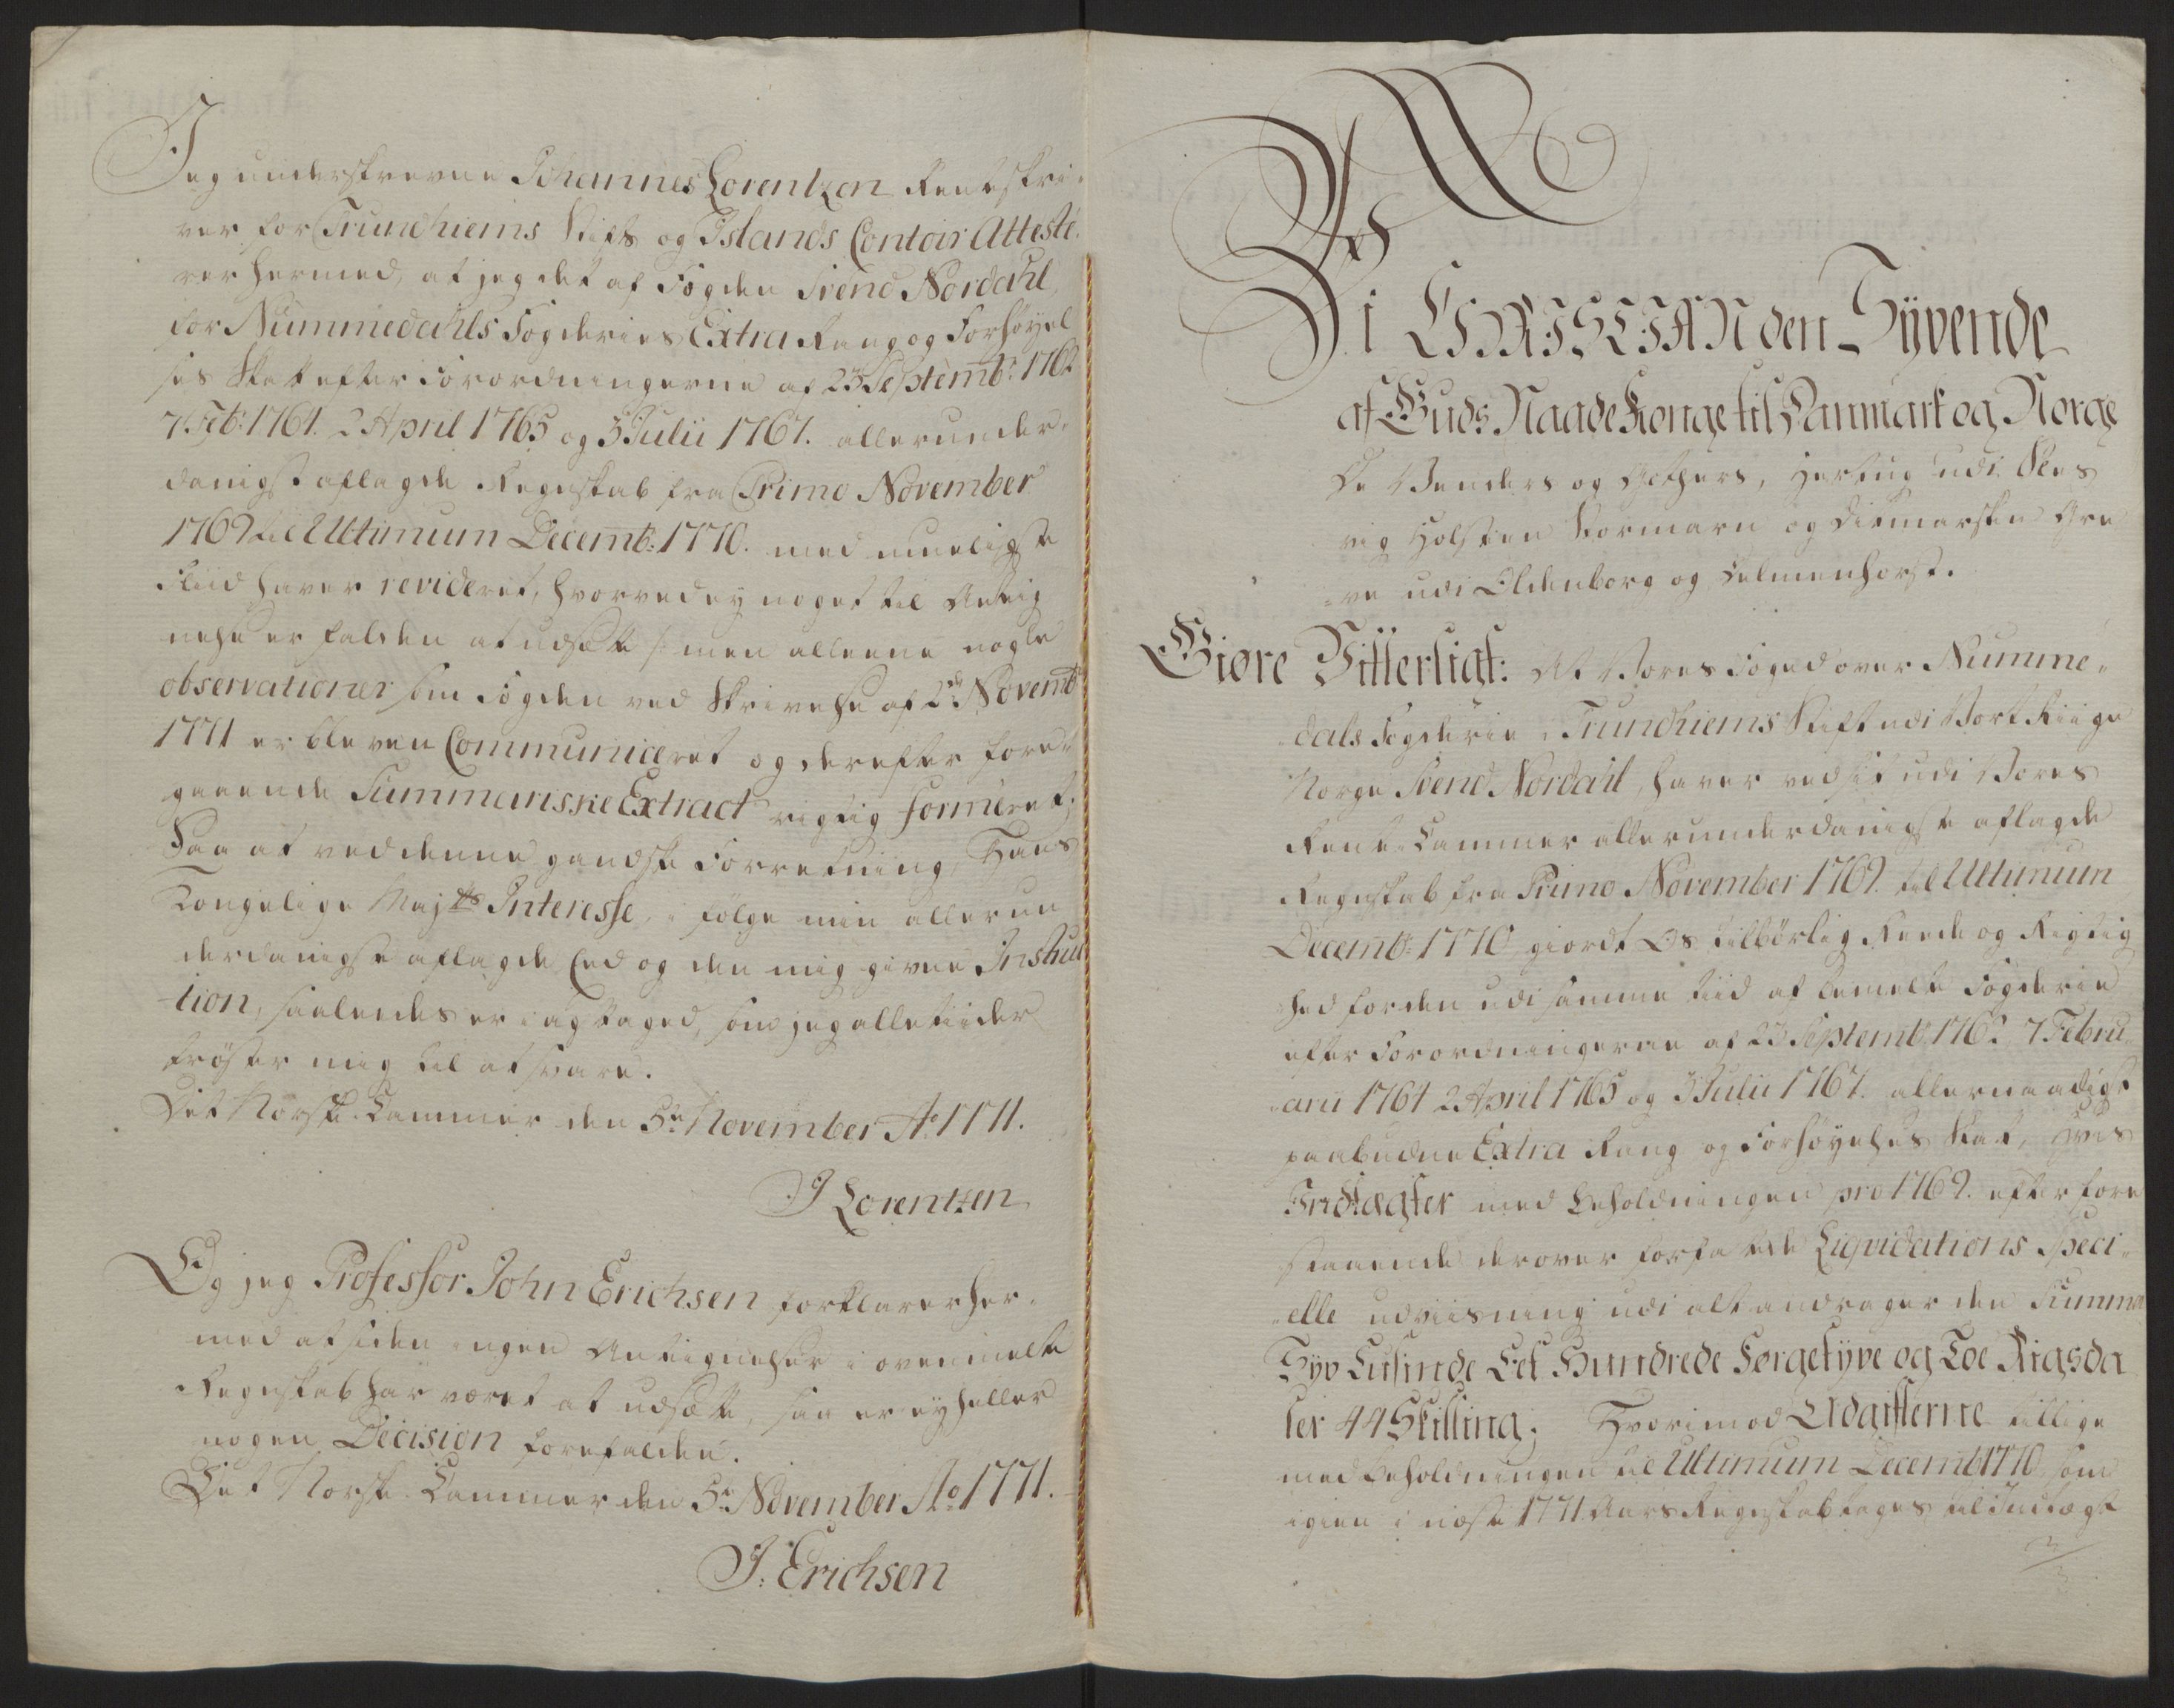 Jeg underskrevne Johannes Lorentzen Rentskri-
ver for Trundhiems Stifts og Islands Contoir Atteste-
rer hermed, at jeg det af Fogden Svend Nordahl
for Nummedahls Fogderies Extra Rang og Forhøyel
ses Skatt efter Forordningerne af 23 Septembr: 1762
7 Feb: 1764. 2 April 1765 og 3 Julii 1767. allerunder-
danigst aflagde Regnskab fra Primo November
1769 til Ultimum Decemb: 1770. med mueligste
Fliid haver revideret, hvorved ey noget til Anteg
nelse er falden at udsætte /: men alleene nogle
observationer som Fogden ved Skrivelse af 2den Novemb
1771 er bleven Communiceret og derefter fore-
gaaende Summariske Extract rigtig formeret;
Saa at ved denne gandske Forretning, Hans
Kongelige Majts Interesse, i følge min allerun
derdanigst aflagde Eed og den mig givne Instruc
tion, saaledes er iagtaged, som jeg alletiider
trøster mig til at svare.
Det Norske Cammer den 5te November Ao 1771.
J Lorentzen
Og jeg Professor John Erichsen forklarer her-
med at siden ingen Antegnelser i ovenmelte
Regnskab har været at udsætte, saa er ey heller
nogen Decision forefalden.
Det Norske Cammer den 5te November Ao 1771.
J: Erichsen
Vi CHRISTIAN den Syvende
af Guds Naade Konge til Danmark og Norge
De Venders og Gothers, Hertug udi Sles
vig Holsten Stormarn og Ditmarsken Gre
ve udi Oldenborg og Delmenhorst.
Giøre Vitterligt: At Vores Foged over Numme-
dals Fogderie i Trundhiems Stift udi Vort Riige
Norge Svend Nordahl, haver ved sit udi Vores
Rente Cammer allerunderdanigst aflagde
Regnskab fra Primo November 1769. til Ultimum
Decemb: 1770 giordt Os tilbørlig Reede og Rigtig
hed for den udi samme tiid af bemelte Fogderie
efter Forordningerne af 23 Septemb. 1762 7 Febru-
arii 1764 2 April 1765 og 3 Julii 1767. allernaadigst
paabudne Extra Rang og Forhøyelses Skat, hvis
Indtægter med Beholdningen pro 1769. efter fore
staaende derover forfattede Liqvidations Speci-
elle udviisning udi alt andrager den Summa
Syv Tusinde Et Hundrede Førgetyve og Toe Rigsda
ler 44 Skilling; Hvorimod Udgifterne tillige
med Beholdningen til Ultimum Decemb 1770 som
igien i næste 1771 Aars Regnskab tages til Indtægt